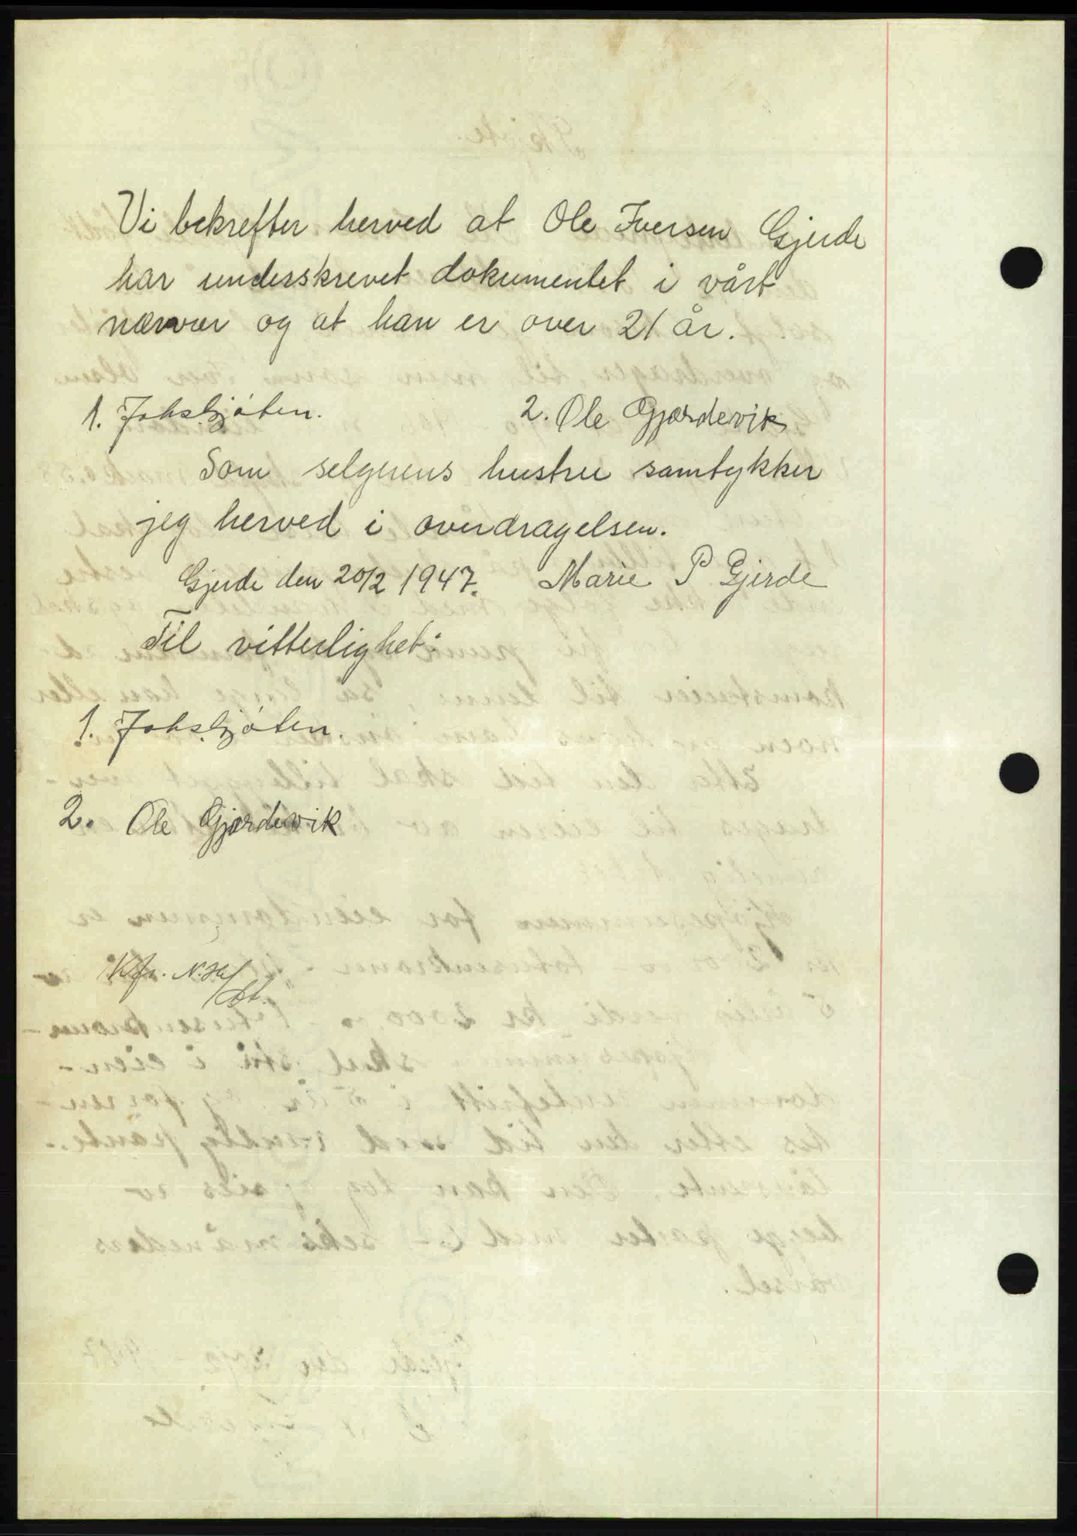 Vi bekrefter herved at Ole Iversen Gjerde
har underskrevet dokumentet i vårt
nærvær og at han er over 21 år.
1. 2. Ole Gjærdevik
Som selgerens hustru samtykker
jeg herved i overdragelsen.
Gjerde den 20/2 1947. Marie P Gjerde
Til vitterlighet:
1.
2. Ole Gjærdevik